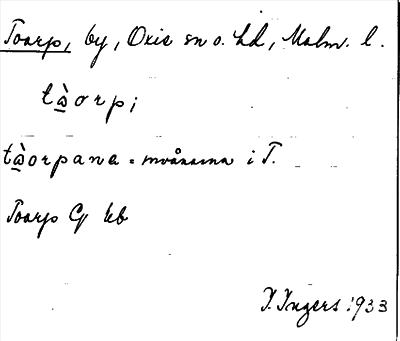 Toarp, by, Oxie sn o. hd, Malm. l.
tà̱orp;
tà̱orpana = invånarna i T.
Toarp Gj kb
I. Ingers 1933